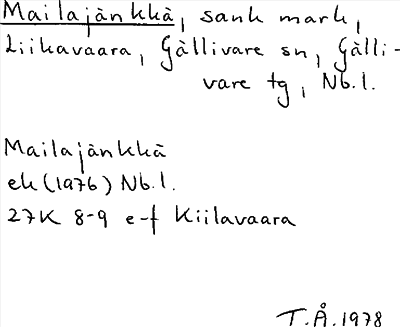 Mailajänkkä, sank mark,
Liikavaara, Gällivare sn, Gälli-
vare tg, Nb.l.
Mailajänkkä
ek (1976) Nb.l.
27K 8-9 e-f Kiilavaara
T.Å. 1978